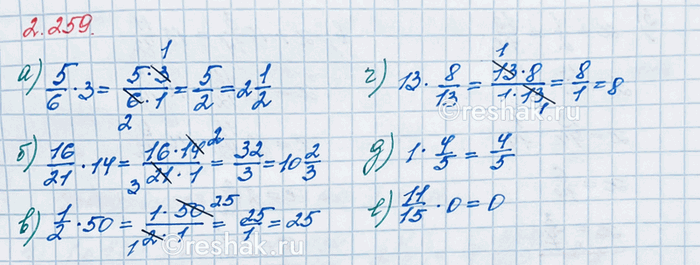 2.259.
а) 5/6 · 3 = 5·3/6·1 = 5/2 = 2 1/2
1
2
б) 16/21 · 14 = 16·14/21·1 = 32/3 = 10 2/3
2
3
в) 1/2 · 50 = 1·50/2·1 = 25/1 = 25
25
1
г) 13 · 8/13 = 13·8/1·13 = 8/1 = 8
1
1
д) 1 · 4/5 = 4/5
е) 11/15 · 0 = 0
©reshak.ru